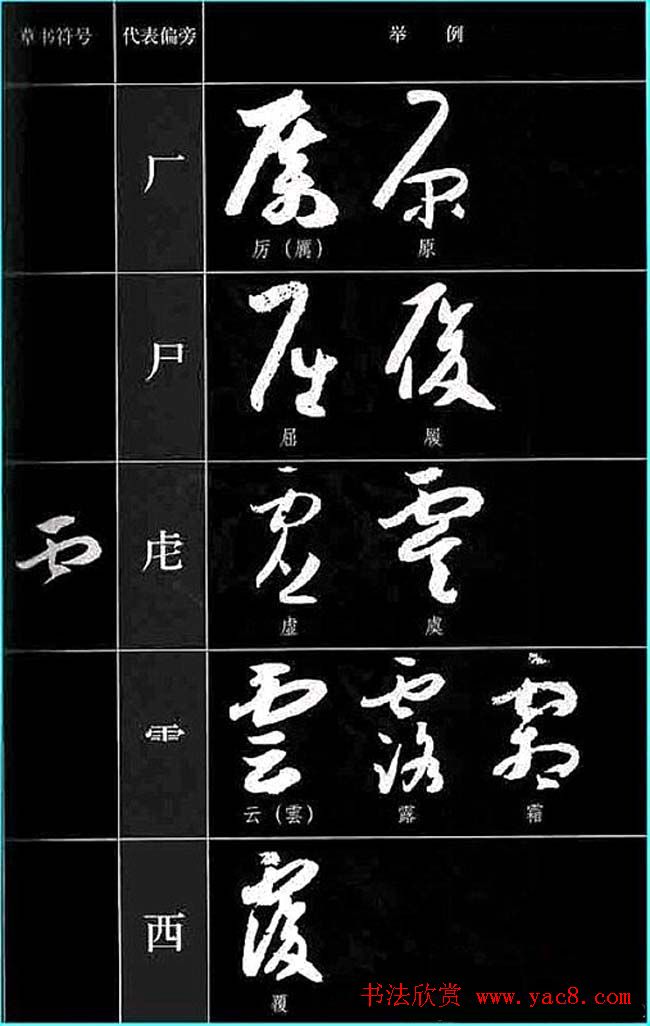 草书符号 代表偏旁 举例
厂
厉（厲） 原
尸
屈 履
虍
虚 虞
⻗
云（雲） 露 霜
西
覆
书法欣赏 www.yac8.com